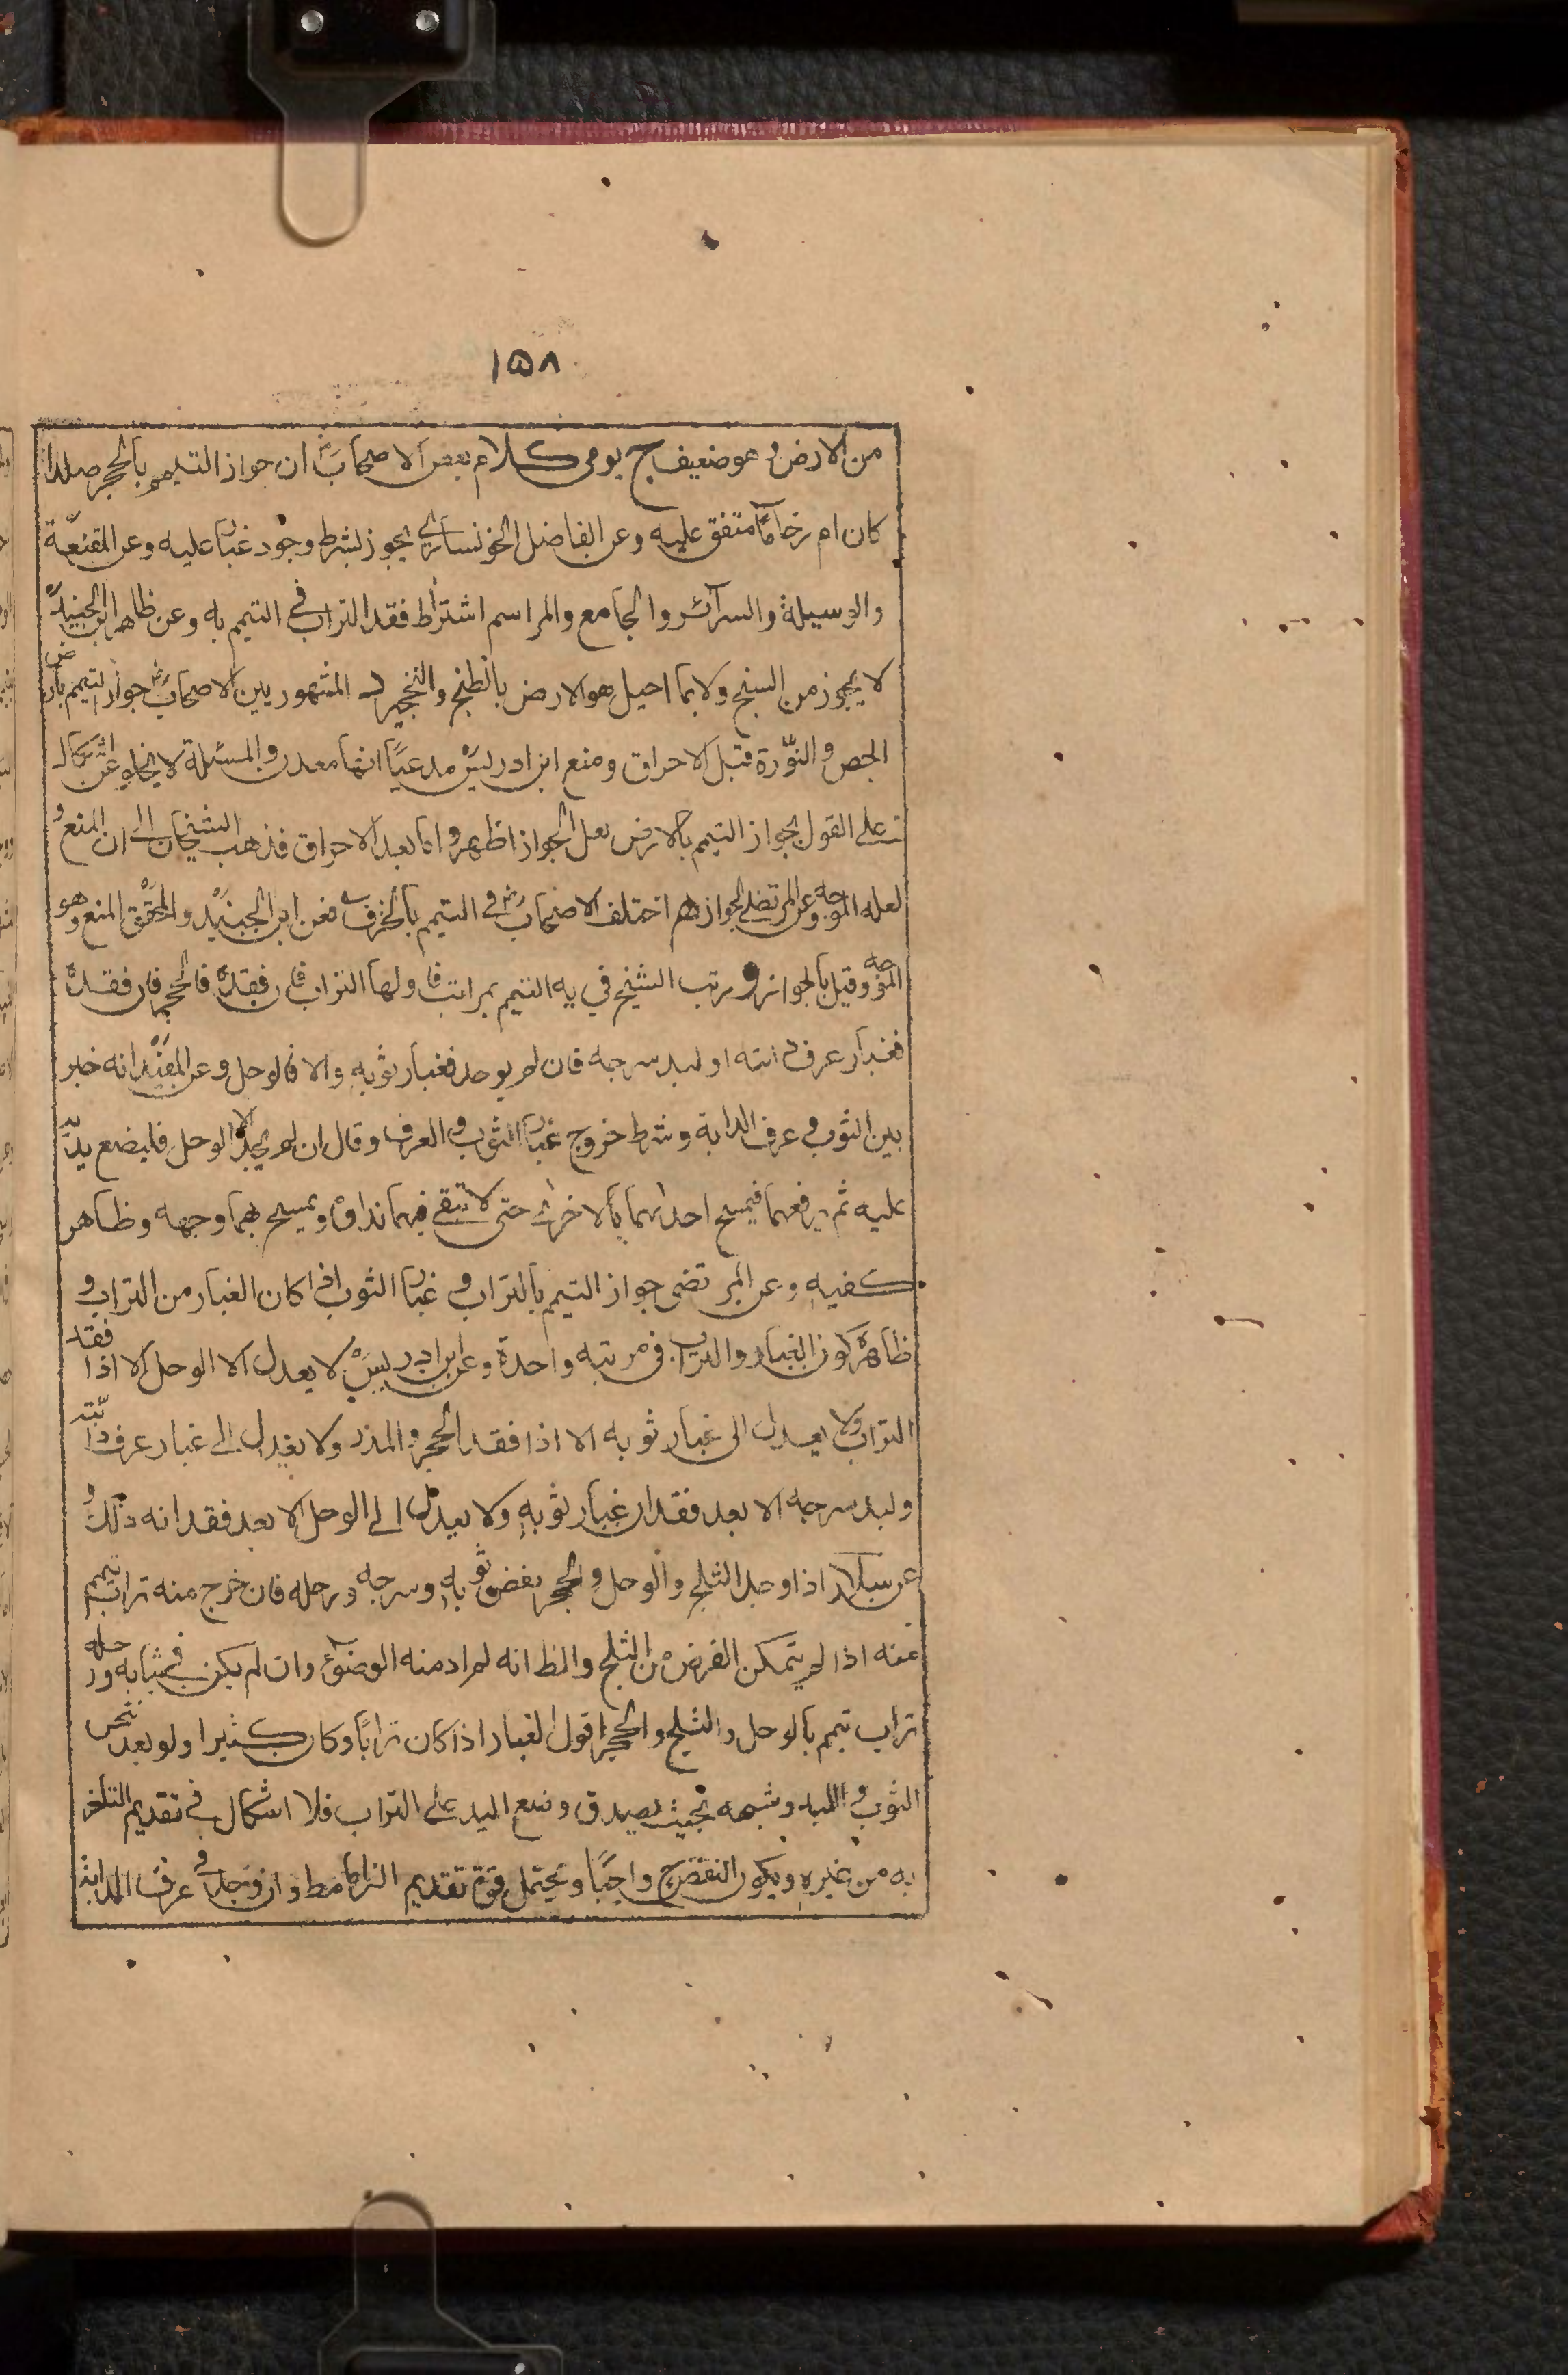 ١٥٨
من الارض و هو ضعيف ج يومى كلام بعض الاصحاب ان جواز التيمم بالحجر صلدا
كان ام رخاماً متفق عليه وعن الفاضل الخونساري يجوز بشرط وجود غبار عليه وعن المقنعة
والوسيلة والسرآئر والجامع والمراسم اشتراط فقد التراب في التيمم به وعن ظاهر ابن الجنيد
لا يجوز من السبخ ولا بما احيل هو الارض بالطبخ والتحجير د المشهور بين الاصحاب جواز التيمم بارض
الجص و النّورة قبل الاحراق ومنع ابن ادريس مدعياً انها معدن والمسئلة لا يخلو عن اشكال
على القول بجواز التيمم بالارض لعل الجواز اظهر واما بعد الاحراق فذهب الشيخان الى ان المنع و
لعله الموجه وعن المرتضى الجواز هم اختلف الاصحاب في التيمم بالخزف فعن ابن الجنيد والمحقق المنع وهو
الموجه وقيل بالجواز و رتب الشيخ في يه التيمم بمراتب فاولها التراب فان فقده فالحجر فان فقده
فغبار عرف دابته او لبد سرجه فان لم يوجد فغبار ثوبه والا فالوحل وعن المفيد انه خير
بين الثوب و عرف الدابة وشرط خروج غبار الثوب و العرف وقال ان لم يجد الا الوحل فليضع يديه
عليه ثم يرفعهما فيمسح احداهما بالاخرى حتى لا تبقى فيهما نداوة ويمسح بهما وجهه وظاهر
كفيه وعن المرتضى جواز التيمم بالتراب و غبار الثوب اذا كان الغبار من التراب و
ظاهره كون الغبار والتراب في مرتبه واحدة وعن ابن ادريس لا يعدل الا الوحل الا اذا فقد
التراب ولا يعدل الى غبار ثوبه الا اذا فقد الحجر و المدر ولا يعدل الى غبار عرف دابته
ولبد سرجه الا بعد فقدان غبار ثوبه ولا يعدل الى الوحل الا بعد فقدانه ذلك و
عن سلار اذا وجد الثلج والوحل والحجر نفض ثوبه وسرجه ورحله فان خرج منه تراب تيمم
منه اذا لم يتمكن الفرض من الثلج والظ انه لمراد منه الوضوء وان لم يكن في ثيابه ورحله
تراب تيمم بالوحل والثلج والحجر اقول الغبار اذا كان تراباً وكان كثيرا ولو بعد نفض
الثوب و اللبد وشبهه بحيث يصدق وضع اليد على التراب فلا اشكال في تقديم التأخر
به من غيره ويكون النفض ح واجباً ويحتمل قوة تقديم التراب مط وان وجد في عرف الدابة